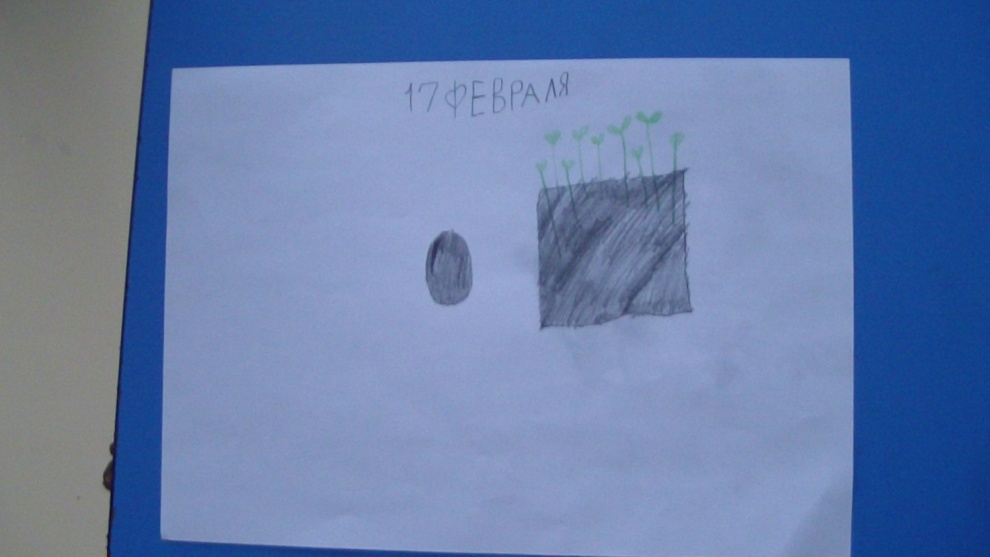 17 ФЕВРАЛЯ